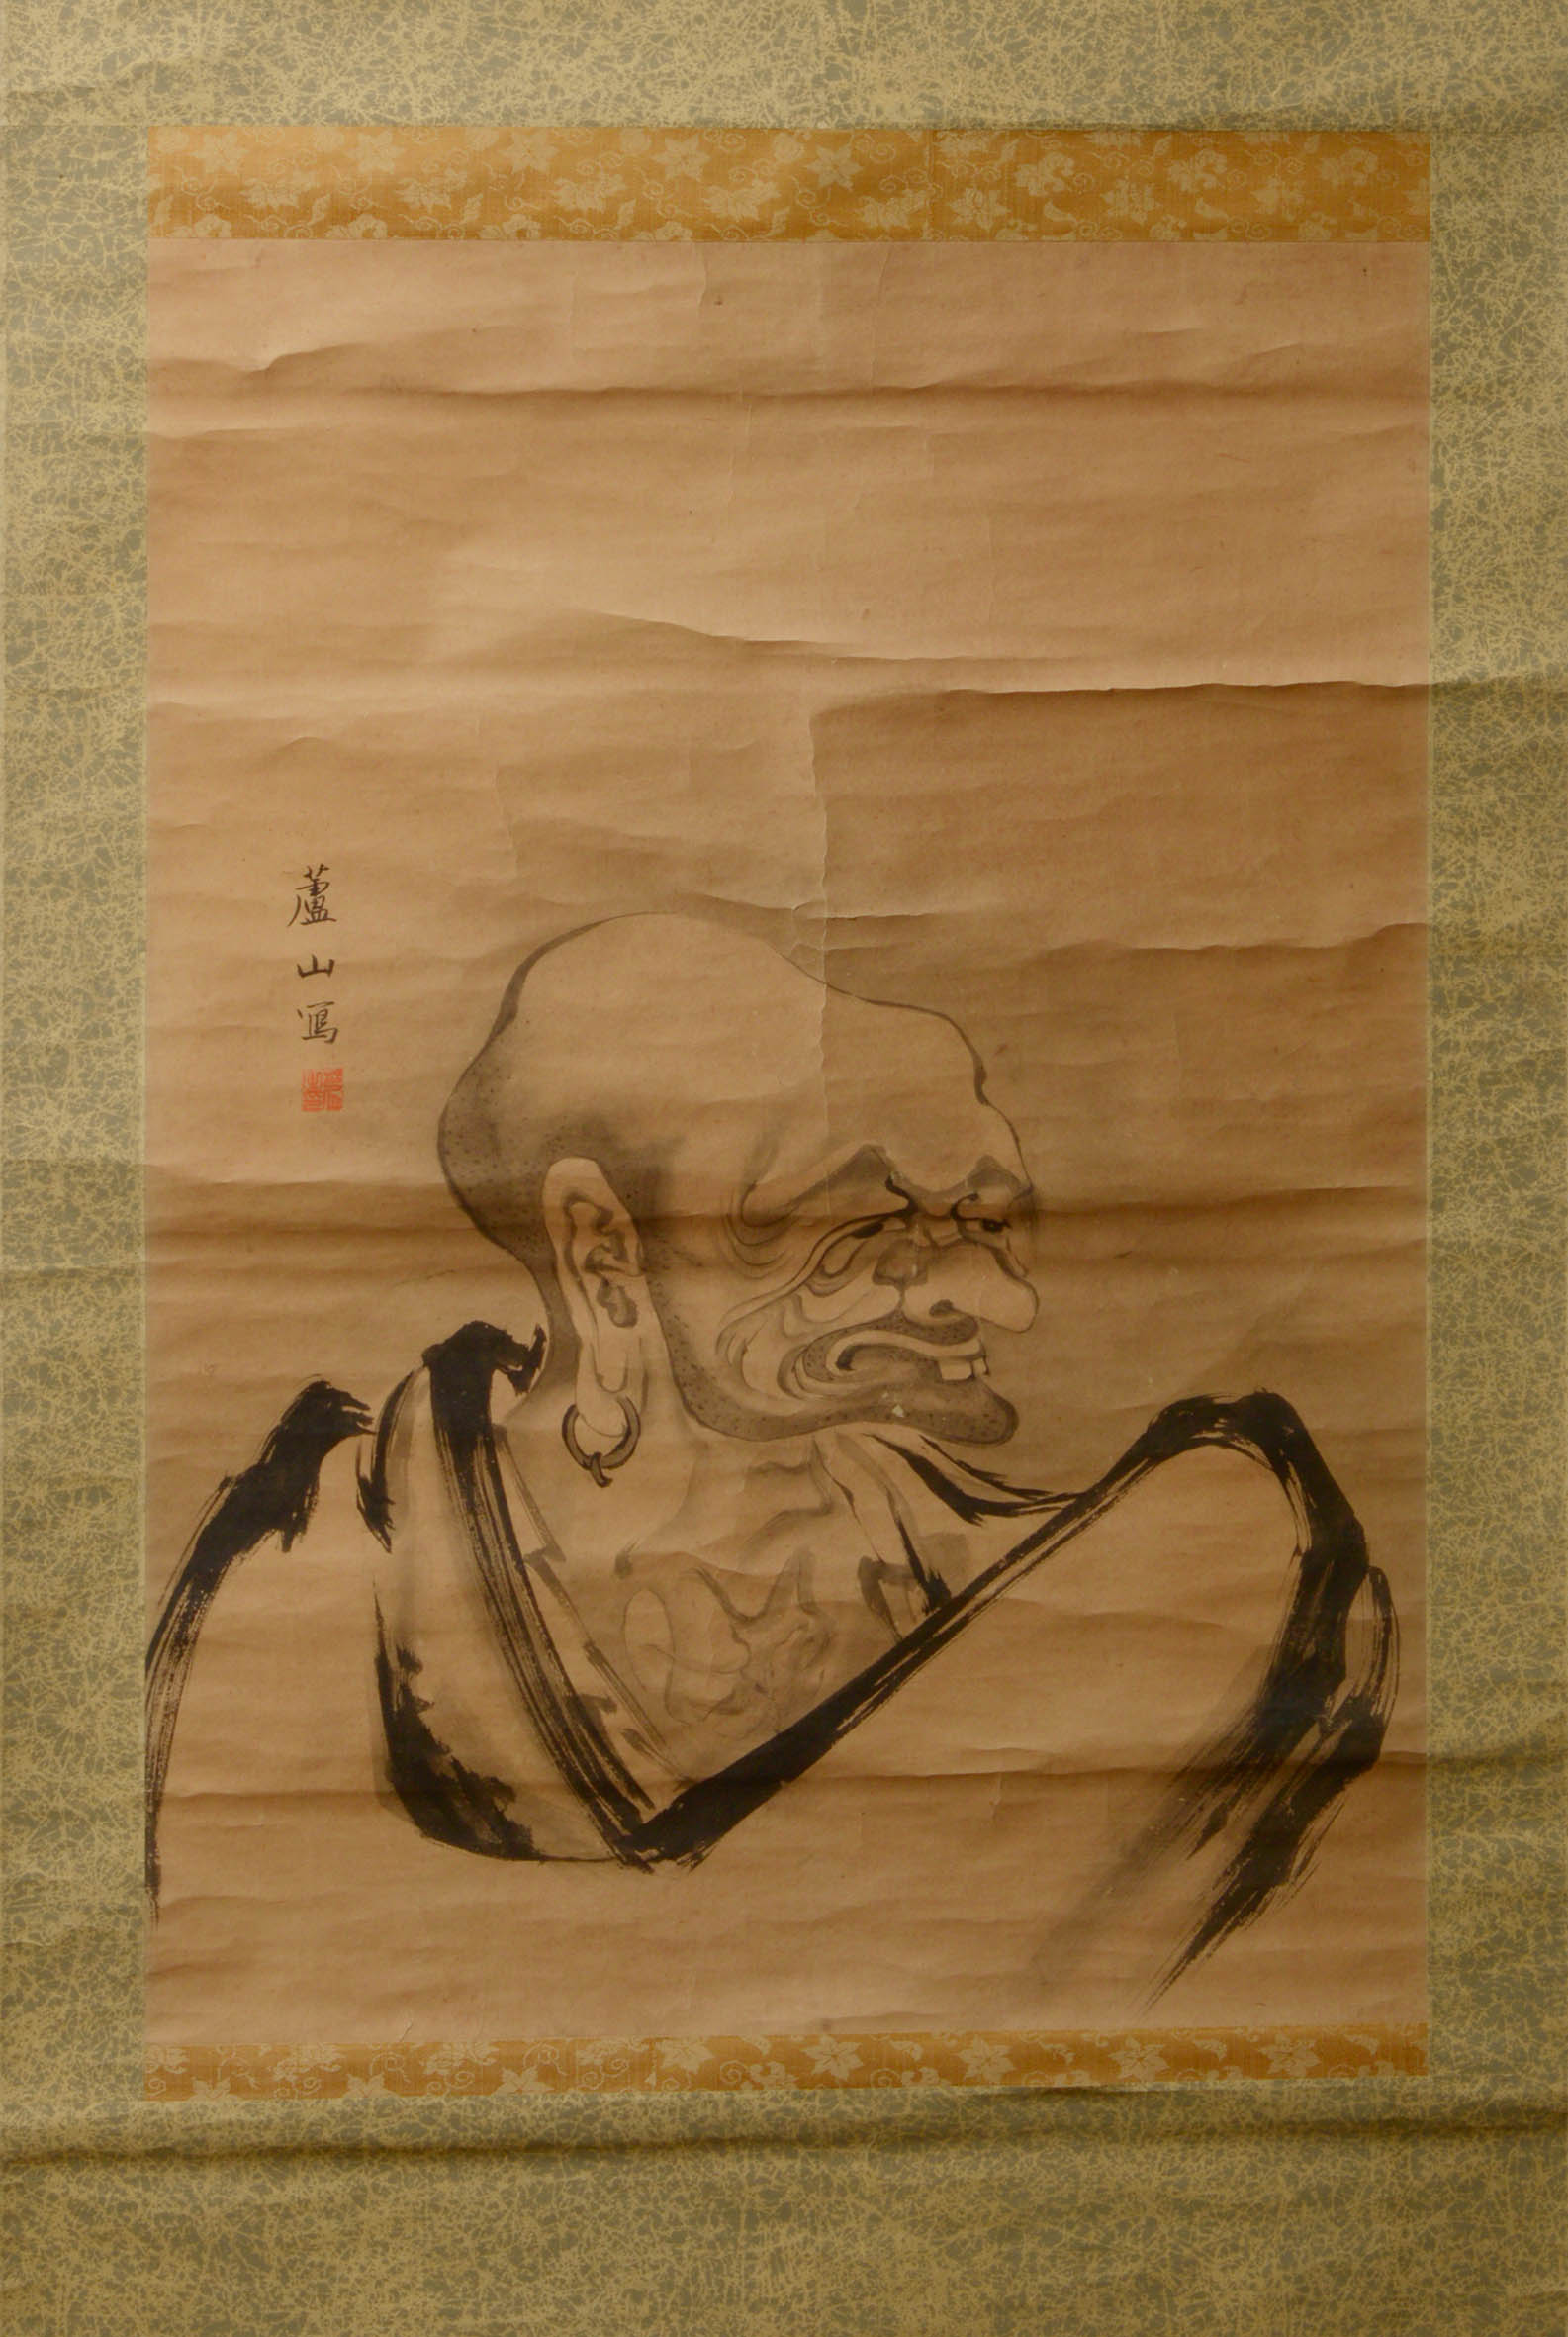 蘆山寫